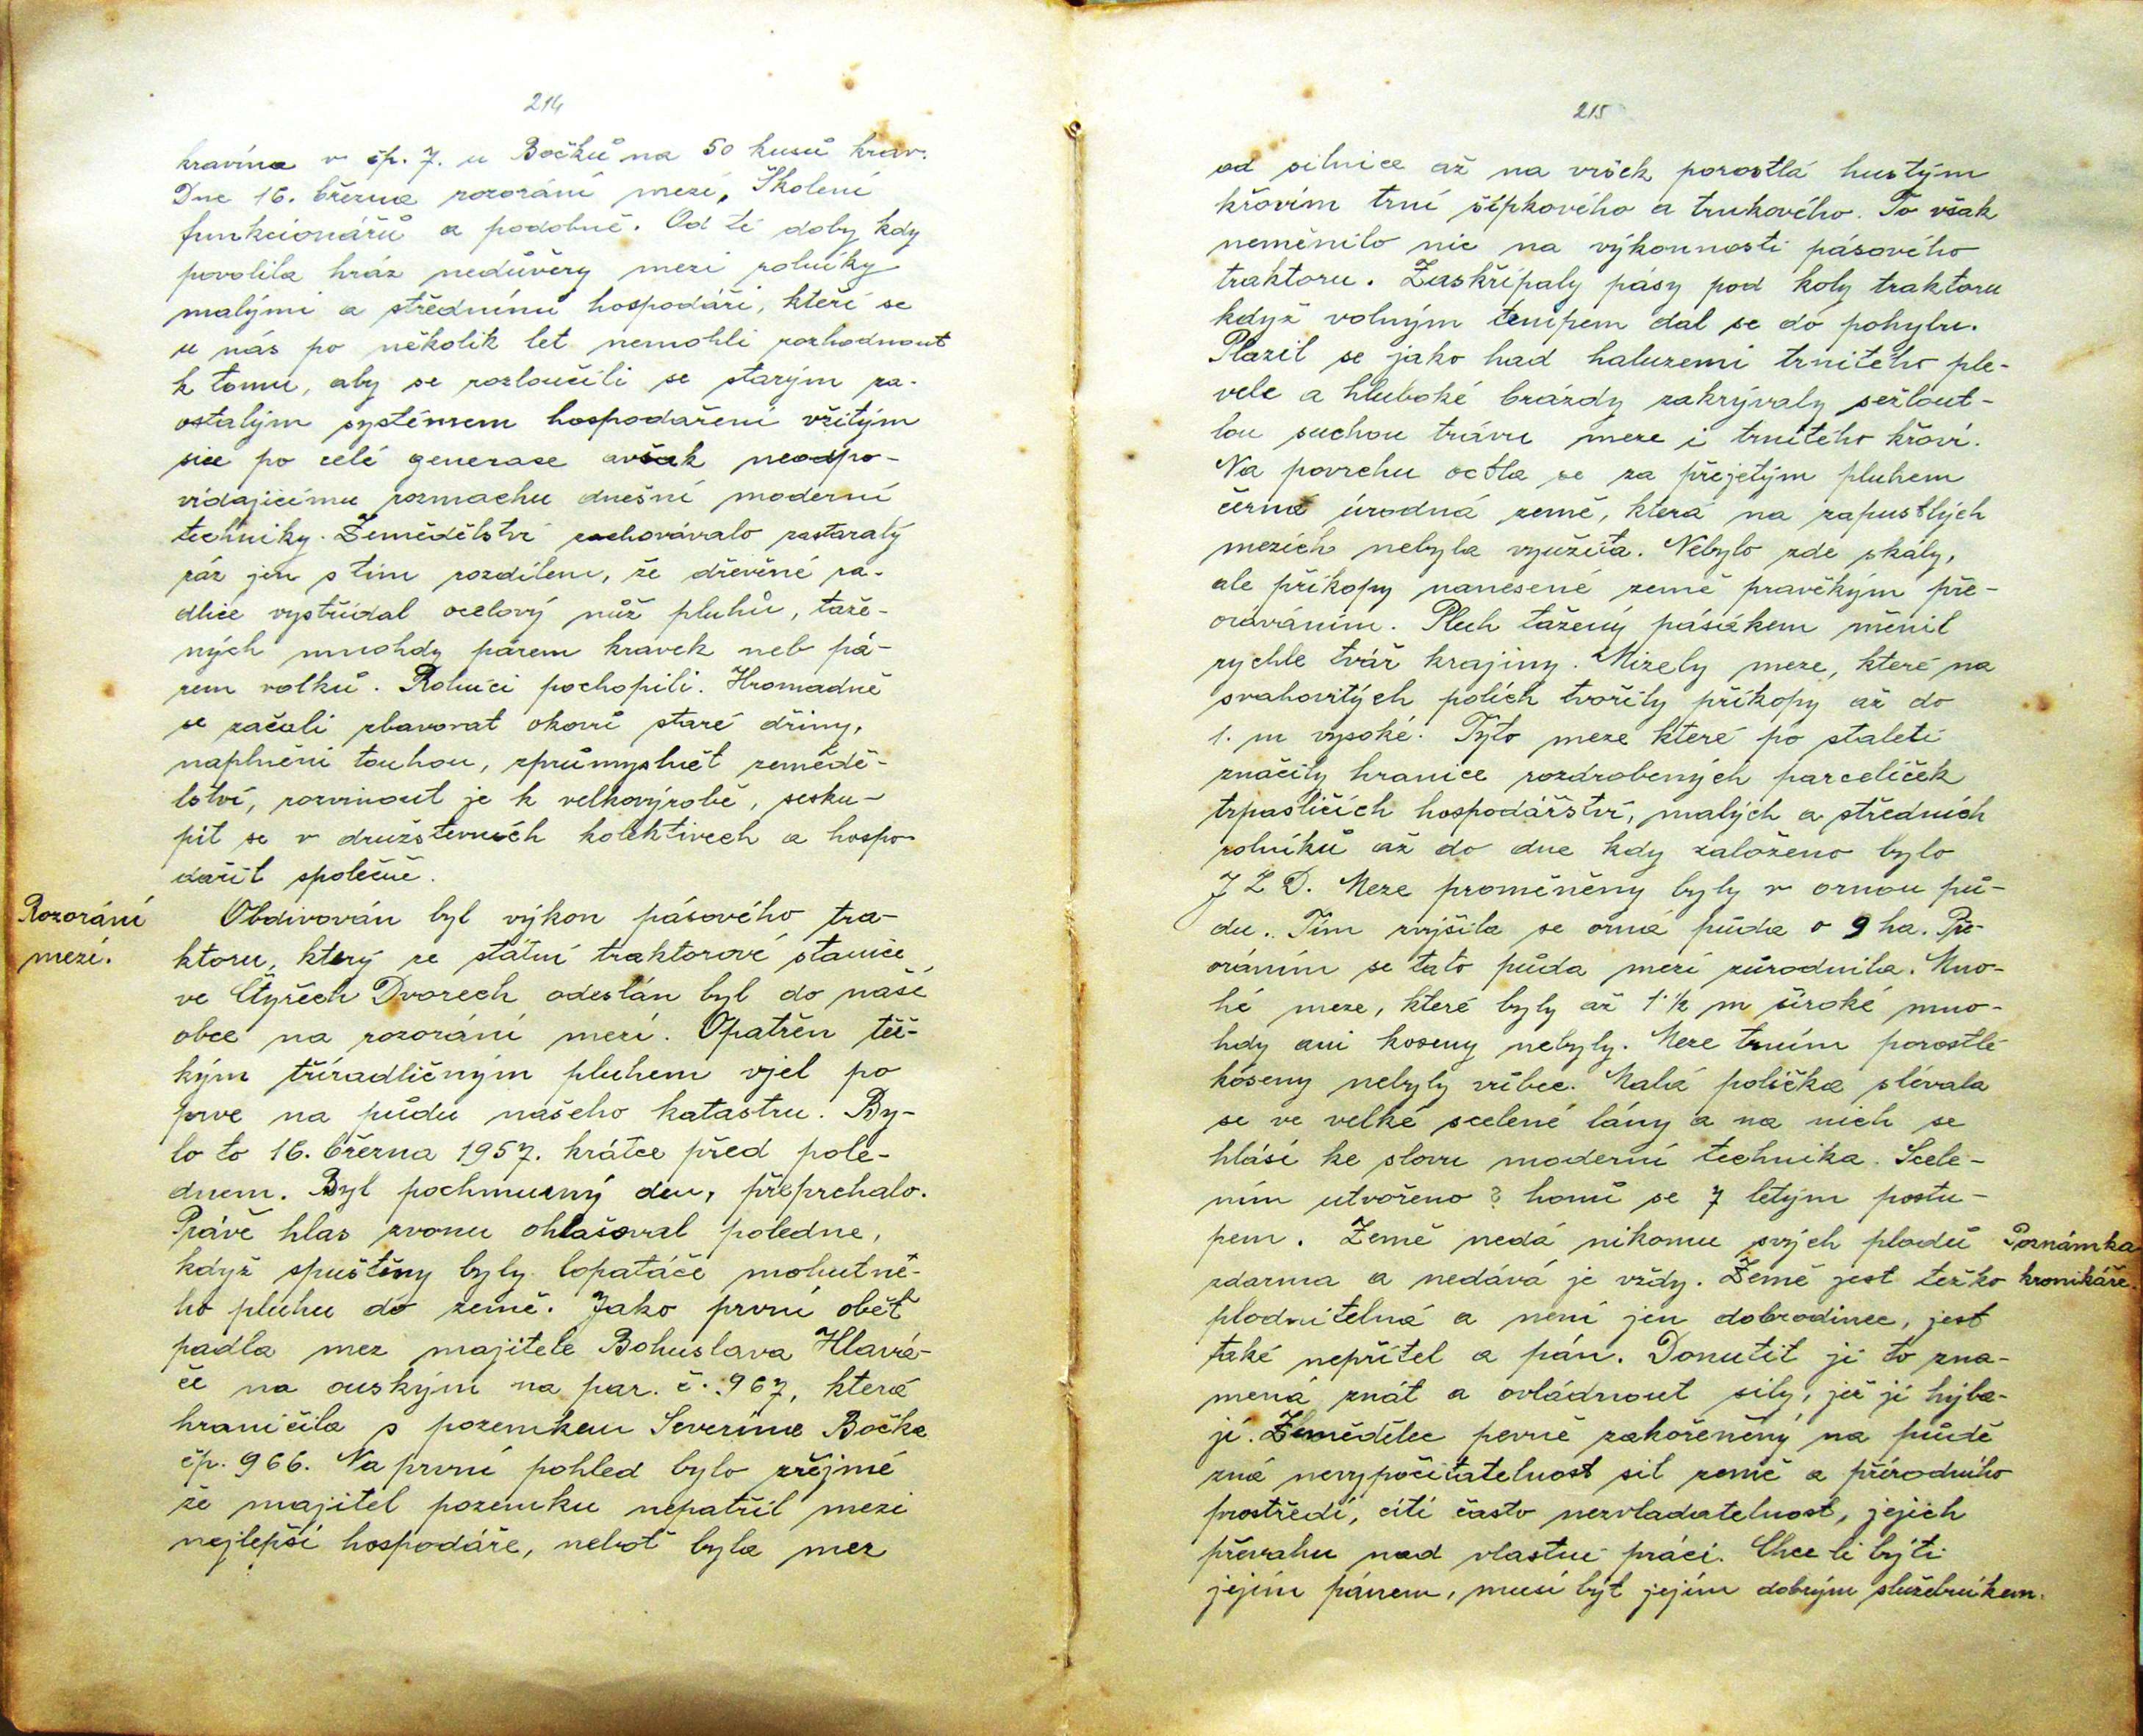 214
kravína v čp. 7. u Bočků na 50 kusů krav.
Dne 16. března rozorání mezí, Školení
funkcionářů a podobně. Od té doby kdy
povolila hráz nedůvěry mezi rolníky
malými a středními hospodáři, kteří se
u nás po několik let nemohli rozhodnout
k tomu, aby se rozloučili se starým za-
ostalým systémem hospodaření vžitým
sice po celé generace avšak neodpo-
vídajícímu rozmachu dnešní moderní
techniky. Zemědělství zachovávalo zastaralý
ráz jen s tím rozdílem, že dřevěné ra-
dlice vystřídal ocelový nůž pluhů, taže-
ných mnohdy párem kravek neb pá-
rem volků. Rolníci pochopili. Hromadně
se začali zbavovat okovů staré dřiny,
naplněni touhou, zprůmyslnět zemědě-
lství, rozvinout je k velkovýrobě, sesku-
pit se v družstevních kolektivech a hospo-
dařit společně.
Rozorání
mezí.
Obdivován byl výkon pásového tra-
ktoru, který ze státní traktorové stanice
ve Čtyřech Dvorech odeslán byl do naší
obce na rozorání mezí. Opatřen těž-
kým třiradličným pluhem vjel po
prve na půdu našeho katastru. By-
lo to 16. března 1957. krátce před pole-
dnem. Byl pochmurný den, přeprchalo.
Právě hlas zvonu ohlašoval poledne,
když spuštěny byly lopatáče mohutné-
ho pluhu do země. Jako první oběť
padla mez majitele Bohuslava Hlavá-
če na ouským na par. č. 967, která
hraničila s pozemkem Severina Bočka
čp. 966. Na první pohled bylo zřejmé
že majitel pozemku nepatřil mezi
nejlepší hospodáře, neboť byla mez
215
od silnice až na vršek porostlá hustým
křovím trní šípkového a trnkového. To však
neměnilo nic na výkonnosti pásového
traktoru. Zaskřípaly pásy pod koly traktoru
když volným tempem dal se do pohybu.
Plazil se jako had haluzemi trnitého ple-
vele a hluboké brázdy zakrývaly sežlout-
lou suchou trávu meze i trnitého křoví.
Na povrchu octla se za přejetým pluhem
černá úrodná země, která na zapustlých
mezích nebyla využita. Nebylo zde skály,
ale příkopy nanesené země pravěkým pře-
oráváním. Pluh tažený pásákem měnil
rychle tvář krajiny. Mizely meze, které na
svahovitých polích tvořily příkopy až do
1. m vysoké. Tyto meze které po staletí
značily hranice rozdrobených parceliček
trpasličích hospodářství, malých a středních
rolníků až do dne kdy založeno bylo
J Z D. Meze proměněny byly v ornou pů-
du. Tím zvýšila se orná půda o 9 ha. Pře-
oráním se tato půda mezí zúrodnila. Mno-
hé meze, které byly až 1 ½ m široké mno-
hdy ani koseny nebyly. Meze trním porostlé
koseny nebyly vůbec. Malá políčka slévala
se ve velké scelené lány a na nich se
hlásí ke slovu moderní technika. Scele-
ním utvořeno ? honů se 7 letým postu-
pem. Země nedá nikomu svých plodů
Poznámka
kronikáře.
zdarma a nedává je vždy. Země jest težko
plodnitelná a není jen dobrodinec, jest
také nepřítel a pán. Donutit ji to zna-
mená znát a ovládnout síly, jež jí hýba-
jí. Zemědělec pevně zakořeněný na půdě
zná nevypočitatelnost sil země a přírodního
prostředí, cítí často nezvladatelnost, jejich
převahu nad vlastní prácí. Chce li býti
jejím pánem, musí být jejím dobrým služebníkem.